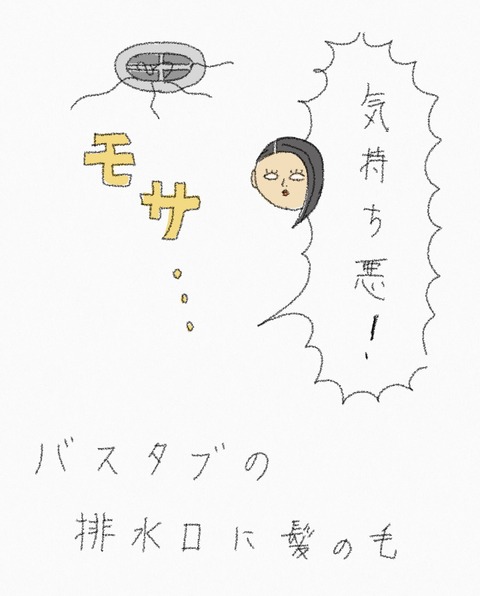 気持ち悪！
モサ…
バスタブの
排水口に髪の毛